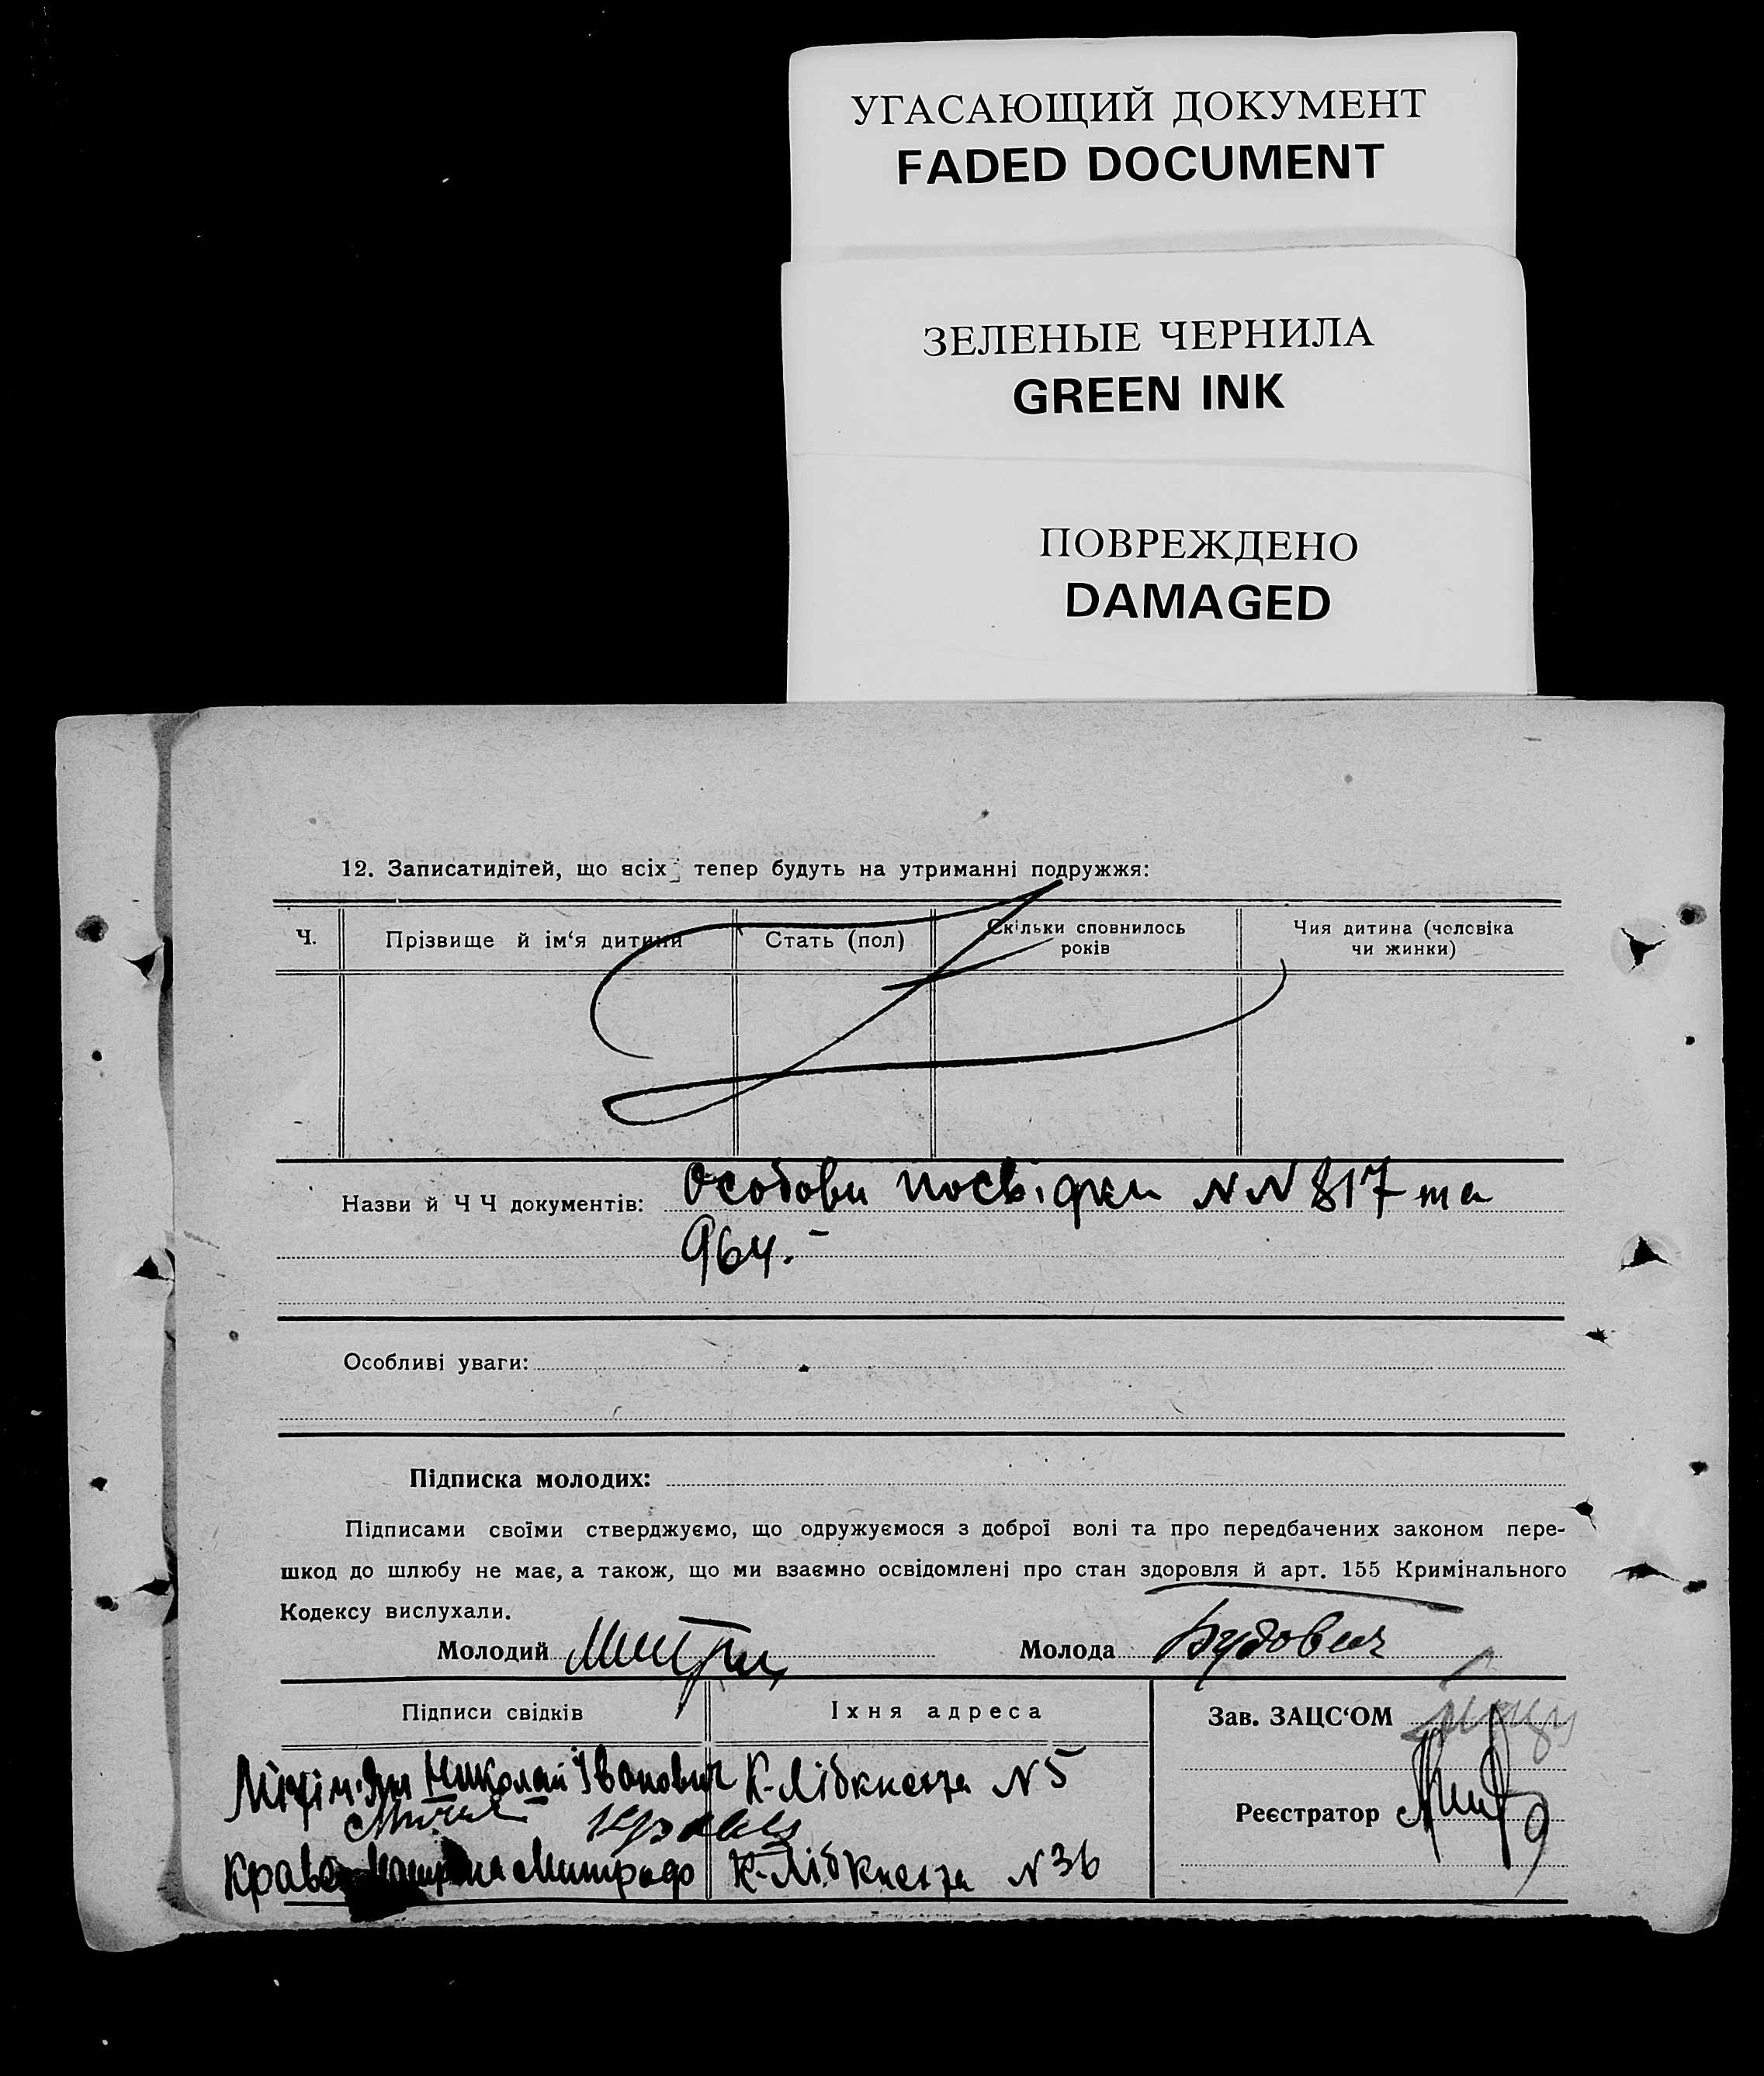 УГАСАЮЩИЙ ДОКУМЕНТ
FADED DOCUMENT
ЗЕЛЕНЫЕ ЧЕРНИЛА
GREEN INK
ПОВРЕЖДЕНО
DAMAGED
12. Записатидітей, що всіх тепер будуть на утриманні подружжя:
Ч.
Прізвище й ім‘я дитини
Стать (пол)
Скільки сповнилось
років
Чия дитина (чоловіка
чи жинки)
Назви й Ч Ч документів: Особови посвідки NN 817 та
964.-
Особливі уваги:
Підписка молодих:
Підписами своїми стверджуємо, що одружуємося з доброї волі та про передбачених законом пере-
шкод до шлюбу не має, а також, що ми взаємно освідомлені про стан здоровля й арт. 155 Кримінального
Кодексу вислухали.
Молодий
Молода Будович
Підписи свідків
Їхня адреса
Зав. ЗАЦС‘ОМ
Николай Іванович К-Лібкнехта N 5
Реєстратор
К-Лібкнехта N 36